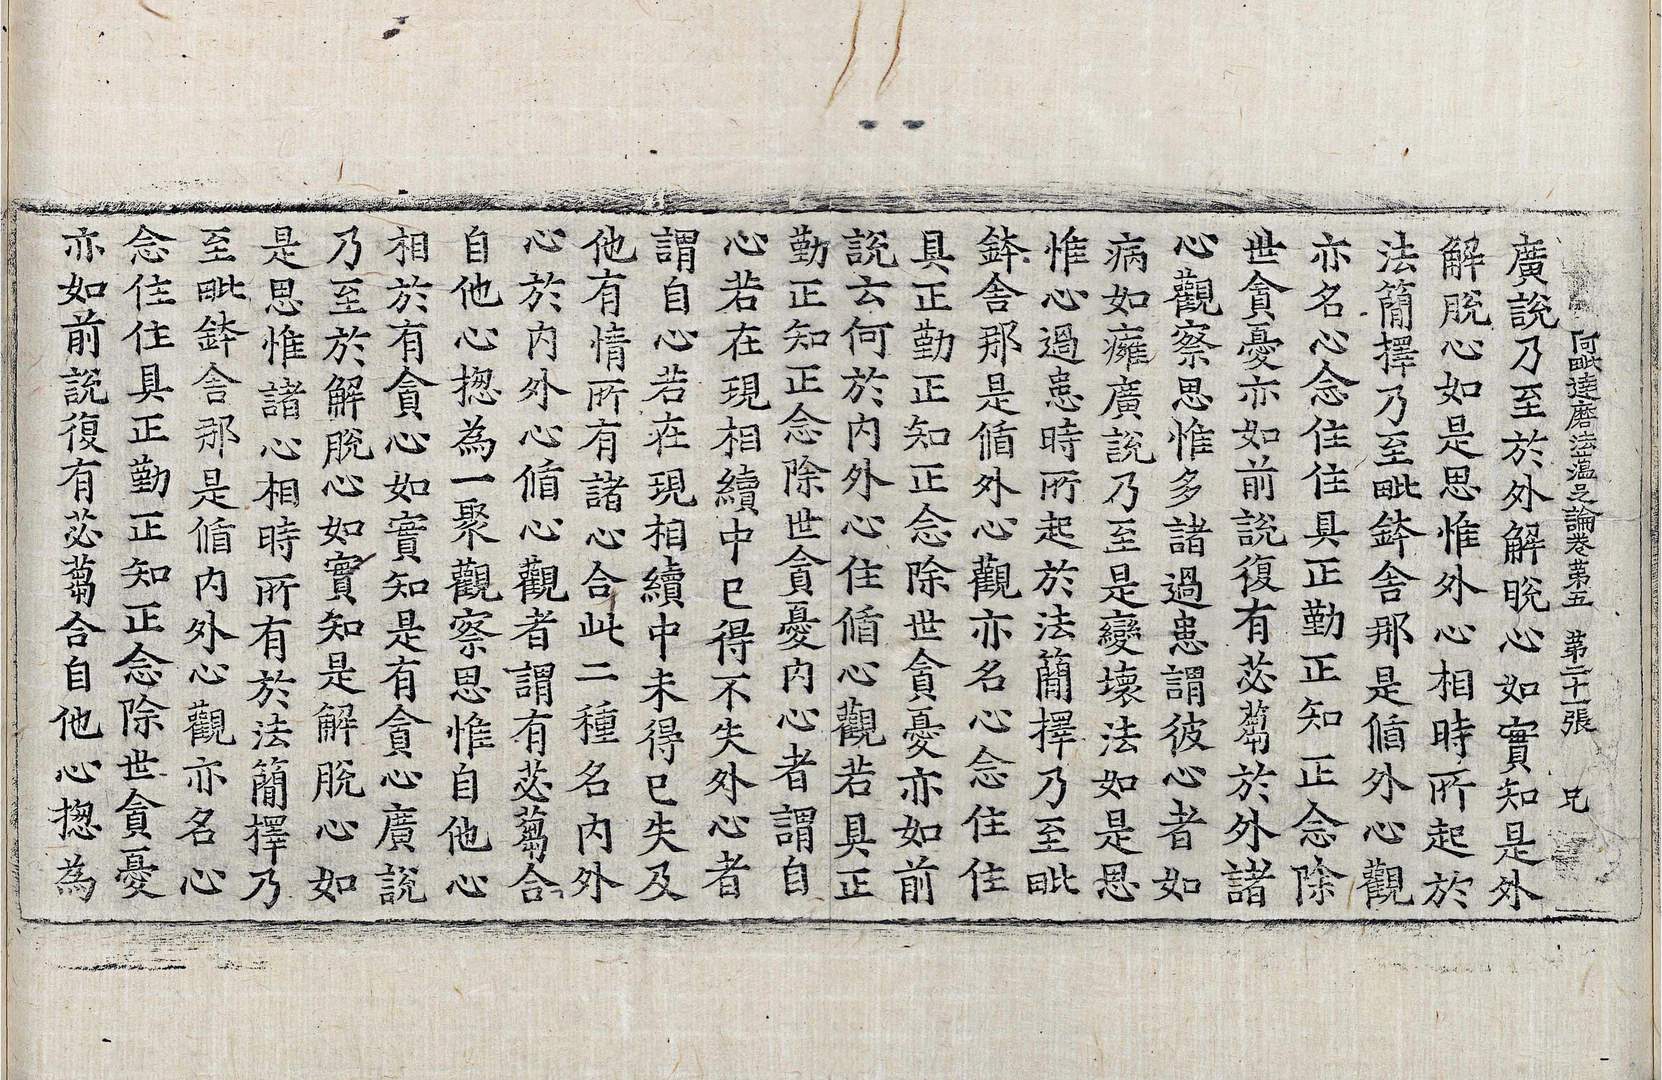 阿毗達磨法蘊足論卷第五　第二十一張　兄
廣說乃至於外解脫心如實知是外
解脫心如是思惟外心相時所起於
法簡擇乃至毗鉢舍那是循外心觀
亦名心念住住具正勤正知正念除
世貪憂亦如前說復有苾蒭於外諸
心觀察思惟多諸過患謂彼心者如
病如癰廣說乃至是變壞法如是思
惟心過患時所起於法簡擇乃至毗
鉢舍那是循外心觀亦名心念住住
具正勤正知正念除世貪憂亦如前
說云何於內外心住循心觀若具正
勤正知正念除世貪憂內心者謂自
心若在現相續中已得不失外心者
謂自心若在現相續中未得已失及
他有情所有諸心合此二種名內外
心於內外心循心觀者謂有苾蒭合
自他心揔為一聚觀察思惟自他心
相於有貪心如實知是有貪心廣說
乃至於解脫心如實知是解脫心如
是思惟諸心相時所有於法簡擇乃
至毗鉢舍那是循內外心觀亦名心
念住住具正勤正知正念除世貪憂
亦如前說復有苾蒭合自他心揔為